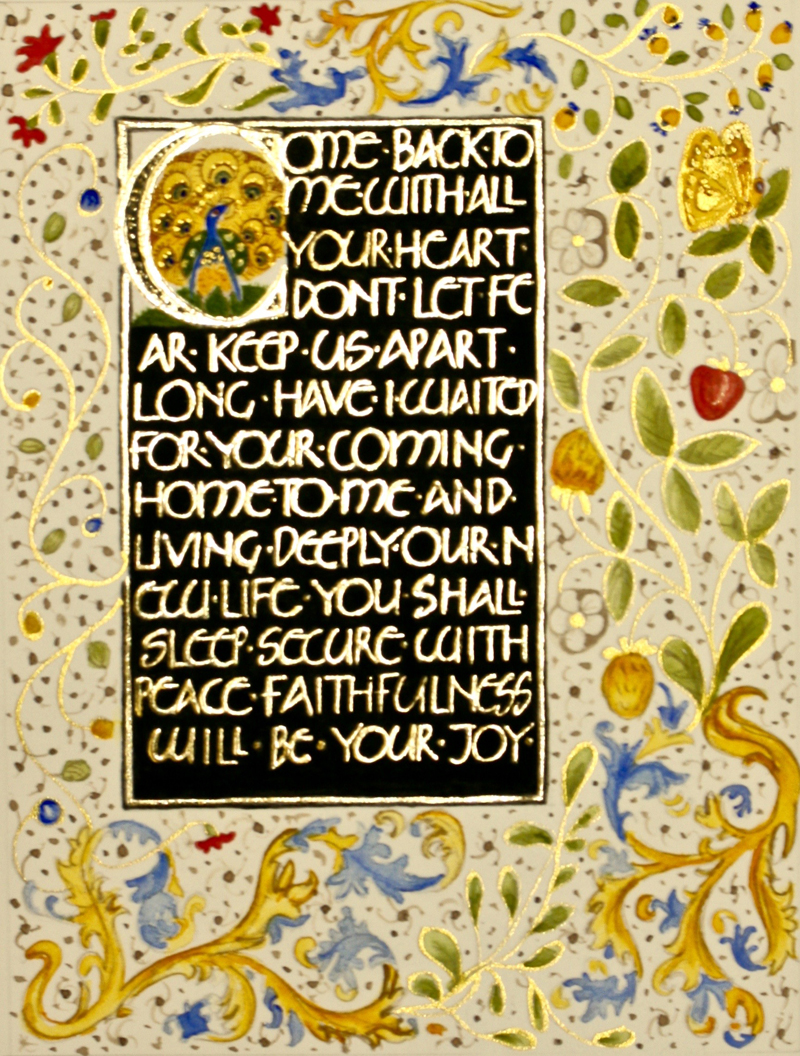 COME·BACK·TO
ME·WITH·ALL
YOUR·HEART·
DONT·LET·FE
AR·KEEP·US·APART·
LONG·HAVE·I·WAITED
FOR·YOUR·COMING·
HOME·TO·ME·AND·
LIVING·DEEPLY·OUR·N
EW·LIFE·YOU·SHALL·
SLEEP·SECURE·WITH
PEACE·FAITHFULNESS
WILL·BE·YOUR·JOY·